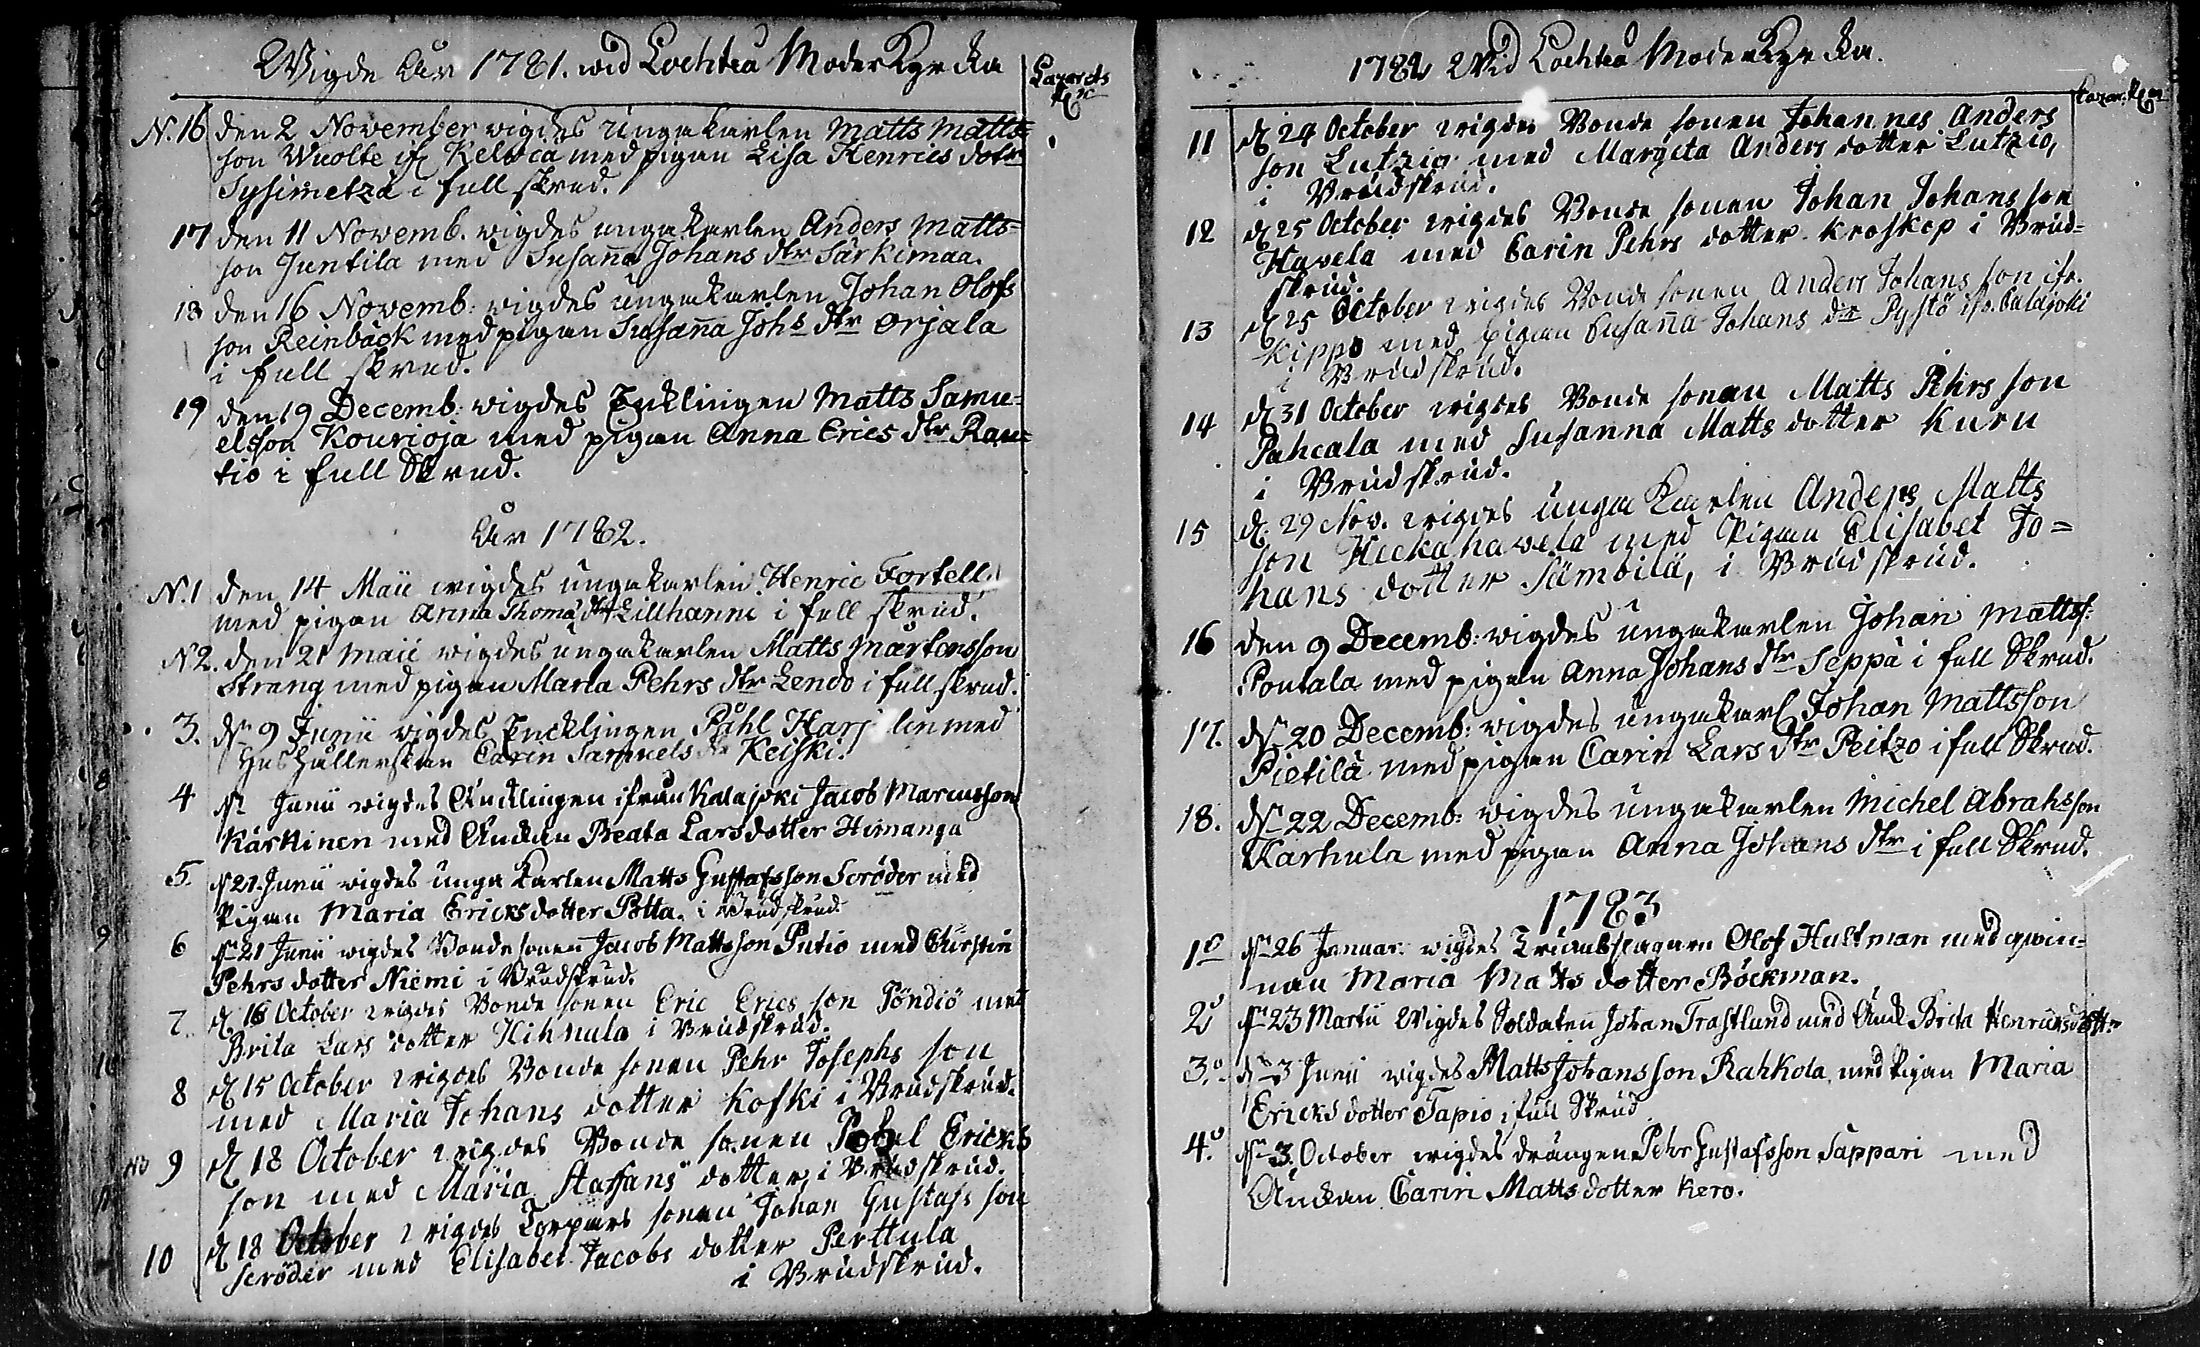 Wigde År 1781. wid Lochteå ModerKyrcka
Lazarets
N. 16 den 2 November wigdes ungakarlen Matts Matts=
son Wuolte ifr Kelviå med pigan Lisa Henrics dotr
Sysimetzä i full skrud.
17 den 11 Novemb. wigdes ungakarlen Anders Matts=
son Juntila med Susaña Johans dtr Särkimaa.
18 den 16 Novemb: wigdes ungakarlen Johan Olofs
son Reinbäck med pigan Susaña Johs dtr Orjala
i full skrud.
19 den 19 Decemb: wigdes Enklingen Matts Samu=
elsson Kourioja med pigan Anna Erics dtr Rau=
tio i full Skrud.
År 1782.
N. 1 den 14 Maii wigdes ungakarlen Henric Fortell
med pigan Anna Thomæ dtr Lillhanni i full skrud.
N 2. den 21 Maii wigdes ungakarlen Matts Mårtensson
Streng med pigan Maria Pehrs dtr Lendo i full skrud.
3. dn 9 Junii wigdes Encklingen Påhl Harj lin med
Hushållerskan Carin Samuels dr Keiski.
4 dn Junii wigdes Äncklingen ifrån Kalajoki Jacob Marcusson
Kärkinen med Änckan Beata Larsdotter Himanga
5. dn 21. Junii wigdes unga Karlen Matts Gustafsson Scröder med
Pigan Maria Ericksdotter Potta. i Brudskrud.
6 dn 21 Junii wigdes Bondesonen Jacob Mattsson Putio med Chirstin
Pehrs dotter Niemi i Brudskrud.
7. d. 16 October wigdes Bonde sonen Eric Erics son Pöndiö med
Brita Lars dotter Hihnula i Brudskrud.
8 d 15 October wigdes Bonde sonen Pehr Josephs son
med Maria Johans dotter Koski i Brudskrud.
No 9 d 18 October wigdes Bonde sonen Påhl Ericks
son med Maria Staffans dotter i Brudskrud.
10 d 18 October wigdes Torpars sonen Johan Gustafs son
Scröder med Elisabet Jacobs dotter Perttula
i Brudskrud.
1782 Wid Lochteå ModerKyrcka.
11 d 24 October wigdes Bonde sonen Johannes Anders
son Lutzio med Margeta Anders dotter Lutzio,
i Brudskrud.
12 d 25 October wigdes Bonde sonen Johan Johans son
Havela med Carin Pehrs dotter Kroskop i Brud=
skrud.
13 d 25 October wigdes Bonde sonen Anders Johans son ifr.
Kippo med pigan Susaña Johans dtr Pystö ifr. Kalajoki
i Brudskrud.
14 d 31 October wigdes Bonde sonen Matts Pehrs son
Pahcala med Susanna Matts dotter Kuru
i Brudskrud.
15 d. 29 Nov. wigdes unga Karlen Anders Matts
son Heckahavela med Pigan Elisabet Jo=
hans dotter Sämbilä, i Brudskrud.
16 den 9 Decemb: wigdes ungakarlen Johan Mattss:
Pontala med pigan Anna Johans dtr Seppä i full Skrud.
17. dn 20 Decemb: wigdes ungakarl Johan Mattsson
Pietilä med pigan Carin Lars dtr Peitzo i full Skrud.
18. dn 22 Decemb: wigdes ungakarlen Michel Abrahsson
Karhula med pigan Anna Johans dtr i full Skrud.
1783
1o dn 26 Januar. wigdes Trumbslagaren Olof Hultman med qwin=
nan Maria Matts dotter Böckman.
2o dn 23 Martii Wigdes Soldaten Johan Trastlund med Änck Brita Henricsdottr
3.o dn 3 Junii wigdes Matts Johansson Rahkola med Pigan Maria
Ericks dotter Tapio i full Skrud
4.o dn 3. October wigdes drängen Pehr Gustafsson Sappari med
Änckan Carin Matts dotter Kero.